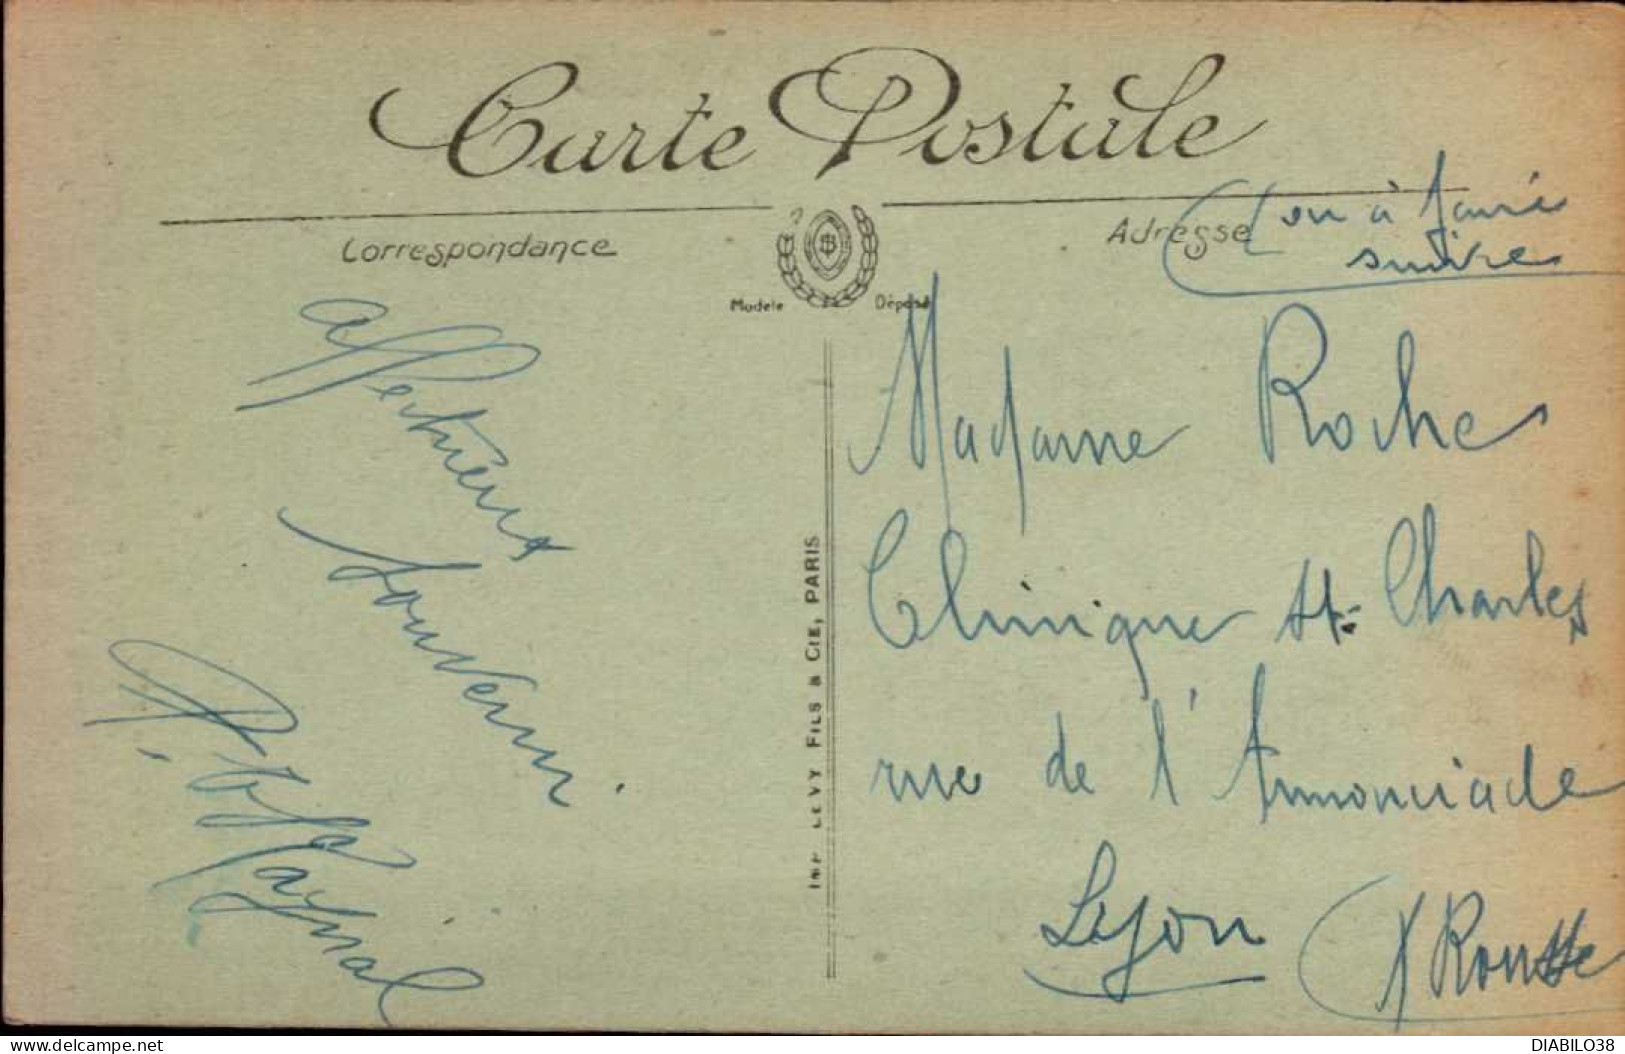 Carte Postale
Correspondance
Adresse
(ou à faire
suivre
Modèle Déposé
affectueux
souvenir
Madame Roche
Clinique St-Charles
rue de l'Annonciade
Lyon
X Rousse
IMP. LEVY FILS & CIE, PARIS
delcampe.net
DIABILO38